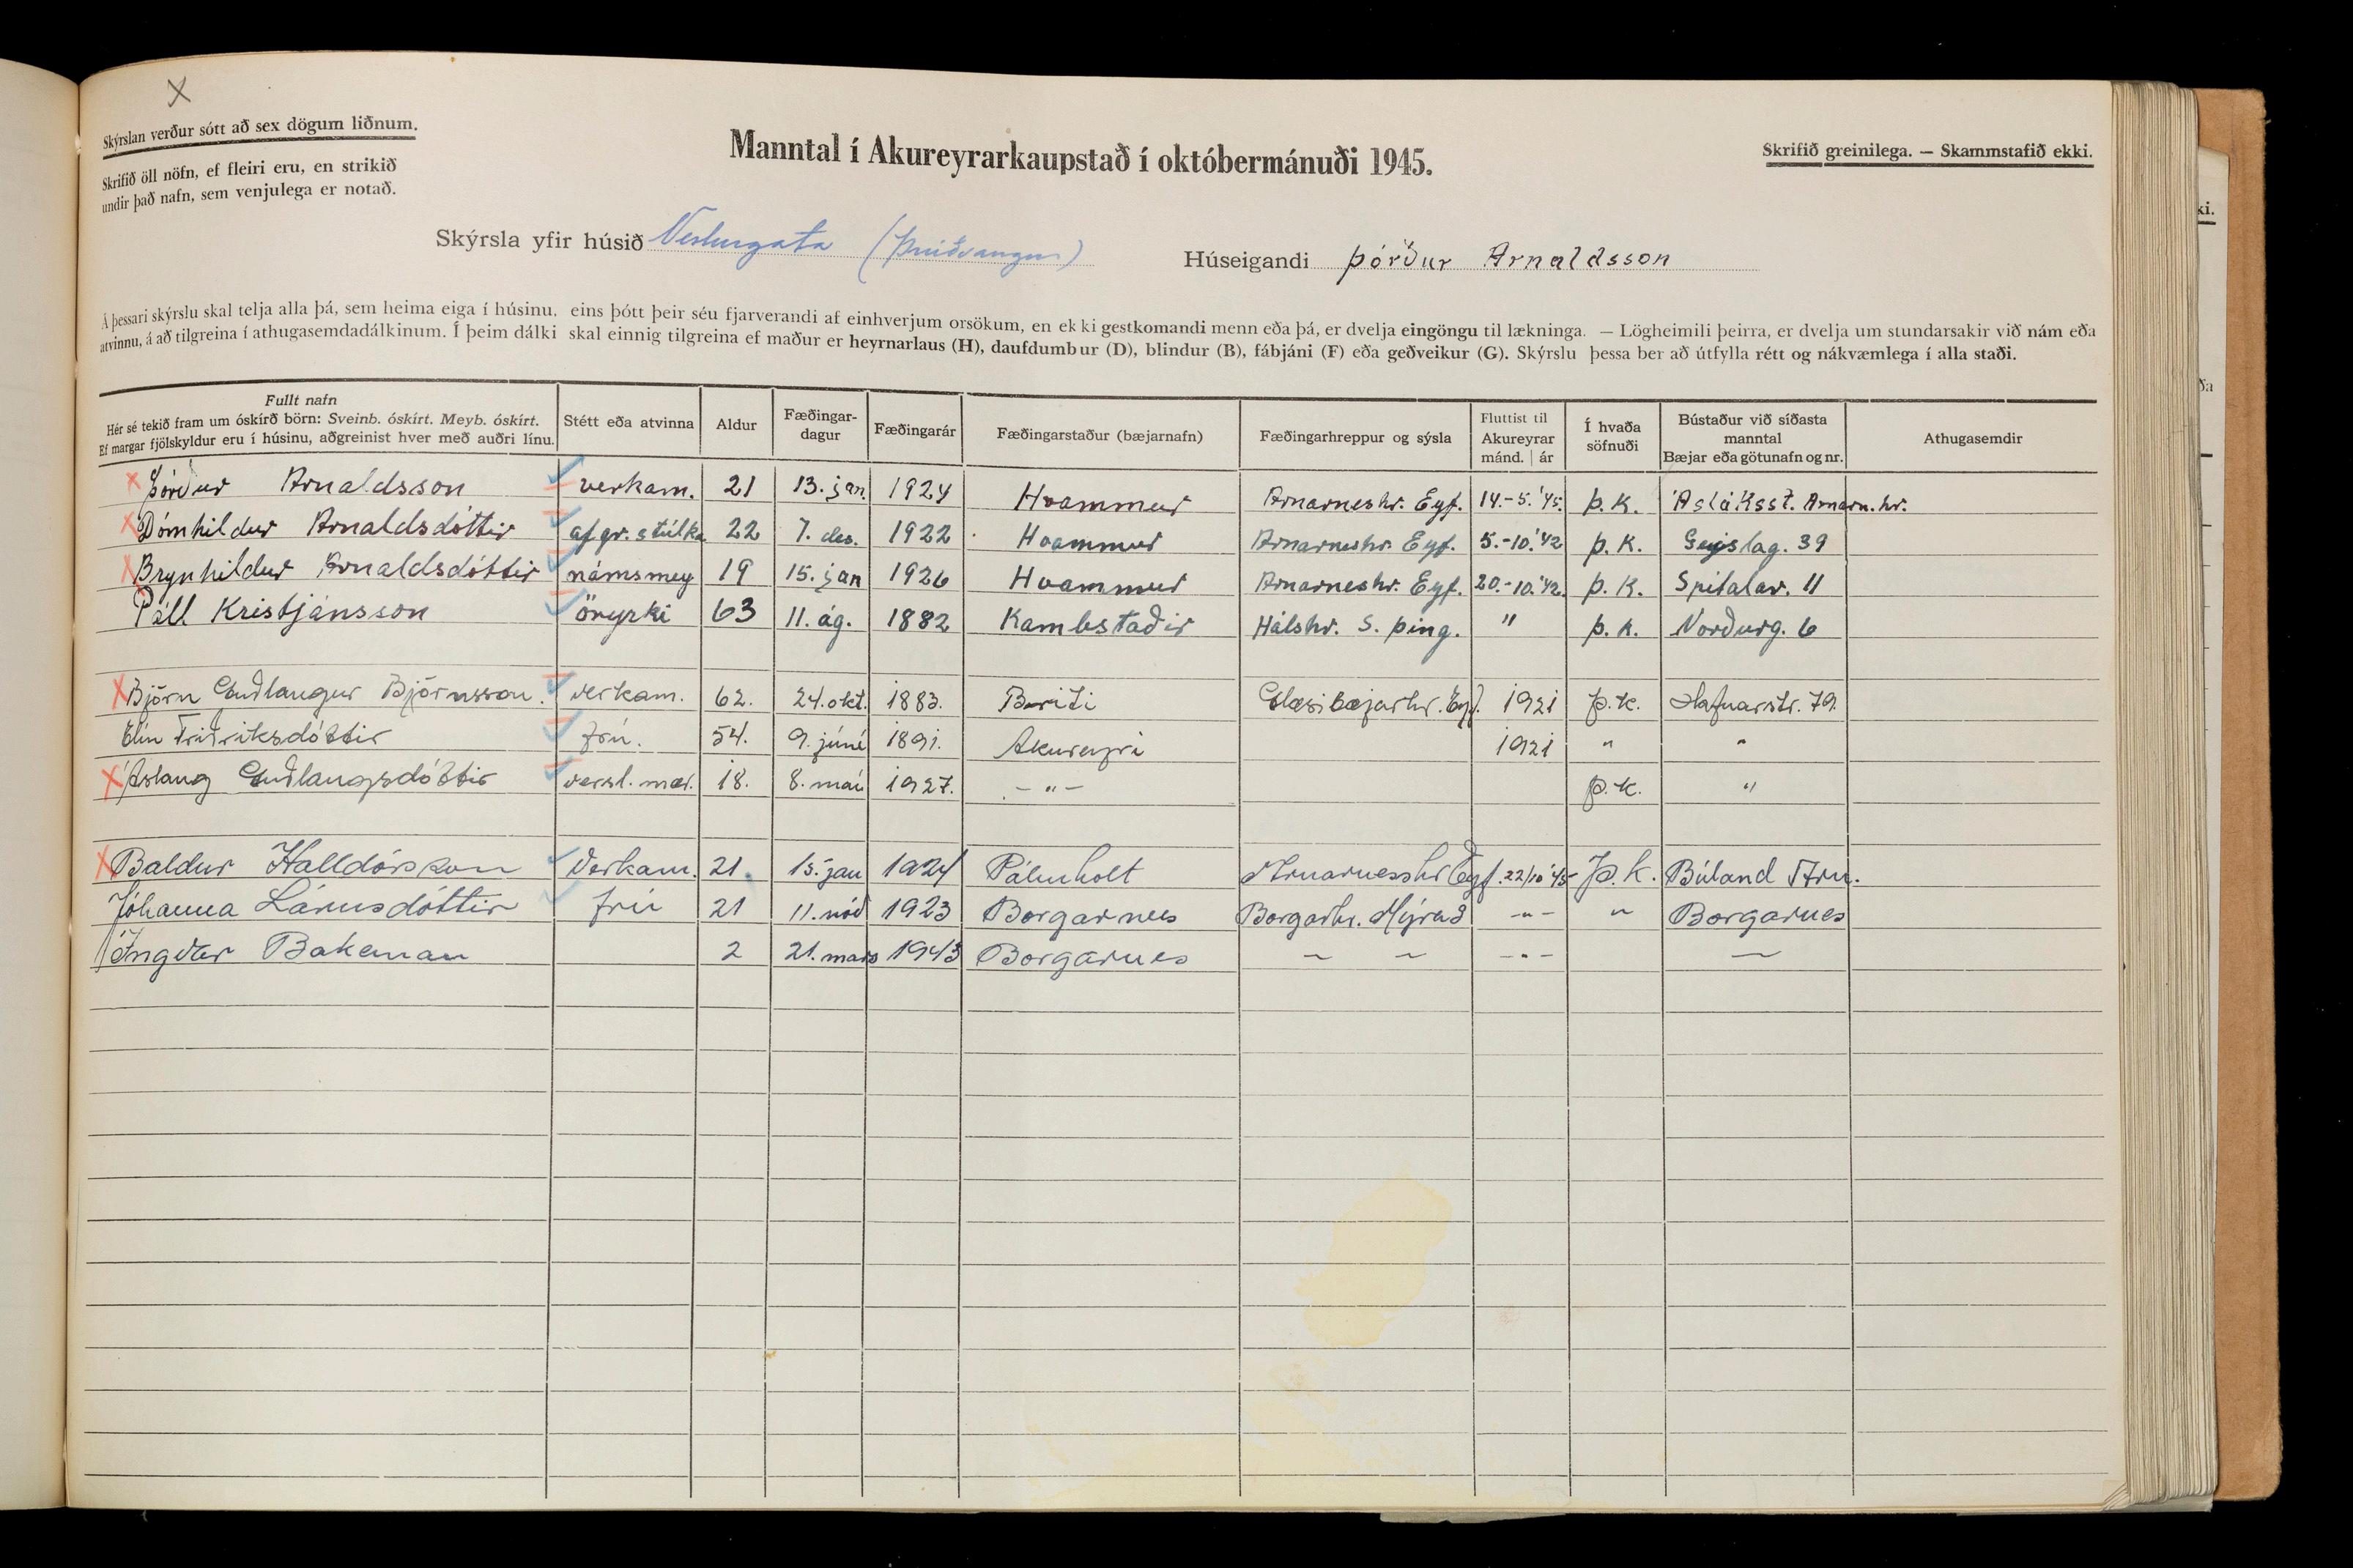 Skýrslan verður sótt að sex dögum liðnum.
Skrifið öll nöfn, ef fleiri eru, en strikið
undir það nafn, sem venjulega er notað.
Manntal í Akureyrarkaupstað í októbermánuði 1945.
Skrifið greinilega. — Skammstafið ekki.
Skýrsla yfir húsið Vesturgata (Þrúðvangur)
Húseigandi Þórður Arnaldsson
Á þessari skýrslu skal telja alla þá, sem heima eiga í húsinu, eins þótt þeir séu fjarverandi af einhverjum orsökum, en ekki gestkomandi menn eða þá, er dvelja eingöngu til lækninga. — Lögheimili þeirra, er dvelja um stundarsakir við nám eða
atvinnu, á að tilgreina í athugasemdadálkinum. Í þeim dálki skal einnig tilgreina ef maður er heyrnarlaus (H), daufdumbur (D), blindur (B), fábjáni (F) eða geðveikur (G). Skýrslu þessa ber að útfylla rétt og nákvæmlega í alla staði.
Fullt nafn
Hér sé tekið fram um óskírð börn: Sveinb. óskírt. Meyb. óskírt.
Ef margar fjölskyldur eru í húsinu, aðgreinist hver með auðri línu.
Stétt eða atvinna
Aldur
Fæðingar-
dagur
Fæðingarár
Fæðingarstaður (bæjarnafn)
Fæðingarhreppur og sýsla
Fluttist til
Akureyrar
mánd. | ár
Í hvaða
söfnuði
Bústaður við síðasta
manntal
Bæjar eða götunafn og nr.
Athugasemdir
Þórður Arnaldsson verkam. 21 13. jan. 1924 Hvammur Arnarneshr. Eyf. 14.-5.'45. Þ. K. Ásláksst. Arnarn.hr.
Dómhildur Arnaldsdóttir afgr. stúlka 22 7. des. 1922 Hvammur Arnarneshr. Eyf. 5.-10.'42 Þ. K. 39
Brynhildur Arnaldsdóttir námsmey 19 15. jan 1926 Hvammur Arnarneshr. Eyf. 20.-10.'42. Þ. K. Spítalav. 11
Páll Kristjánsson öryrki 63 11. ág. 1882 Kambstaðir Hálshr. S. Þing. " Þ. K. Norðurg. 6
Björn Guðlaugur Björnsson. verkam. 62. 24. okt. 1883. Glæsibæjarhr. Eyf. 1921 Þ. K. Hafnarstr. 79.
Elín Friðriksdóttir frú. 54. 9. júní 1891. Akureyri 1921 " "
Áslaug Guðlaugsdóttir versl. mær. 18. 8. maí 1927. -"- Þ. K. "
Baldur Halldórsson Verkam. 21. 15. jan 1924 Pálmholt Arnarnesshr Eyf. 22/10 '45 Þ. K. Búland Arn.
Jóhanna Lárusdóttir frú 21 11. nóv 1923 Borgarnes Borgarhr. Mýras -"- " Borgarnes
Ingvar Bakeman 2 21. mars 1943 Borgarnes — — -"- —